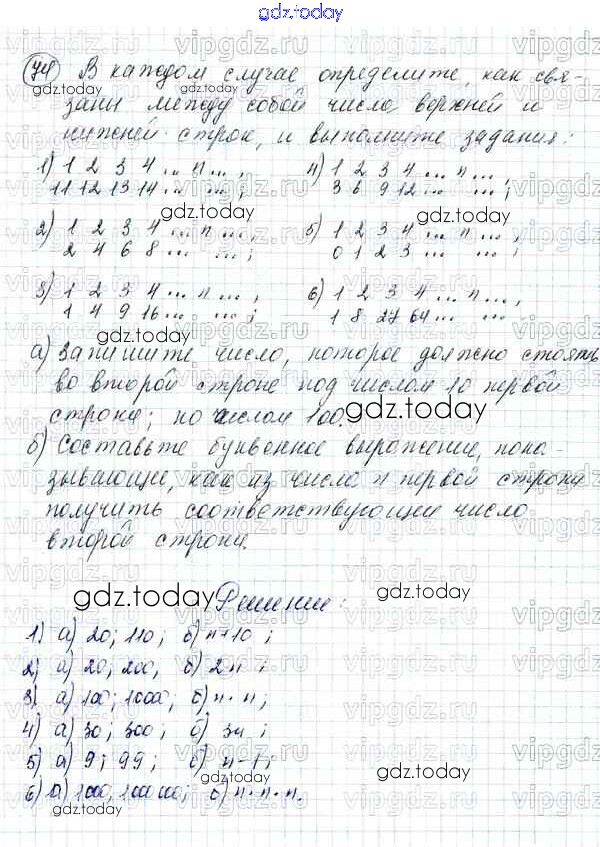 gdz.today
74) В каждом случае определите, как свя-
заны между собой числа верхней и
нижней строк, и выполните задания:
1) 1 2 3 4 ... n ... , 4) 1 2 3 4 ... n ... ,
11 12 13 14 ... ... ; 3 6 9 12 ... ... ;
2) 1 2 3 4 ... n ... , 5) 1 2 3 4 ... n ... ,
2 4 6 8 ... ... ; 0 1 2 3 ... ... ;
3) 1 2 3 4 ... n ... , 6) 1 2 3 4 ... n ... ,
1 4 9 16 ... ... ; 1 8 27 64 ... ... ;
а) Запишите число, которое должно стоять
во второй строке под числом 10 первой
строки; по числом 100.
б) Составьте буквенное выражение, пока-
зывающее, как из числа n первой строки
получить соответствующее число
второй строки.
Решение:
1) а) 20; 110; б) n+10 ;
2) а) 20, 200, б) 2n ;
3) а) 100; 1000, б) n · n;
4) а) 30; 300; б) 3n ;
5) а) 9; 99; б) n-1;
6) а) 1000, 100000; б) n · n · n.